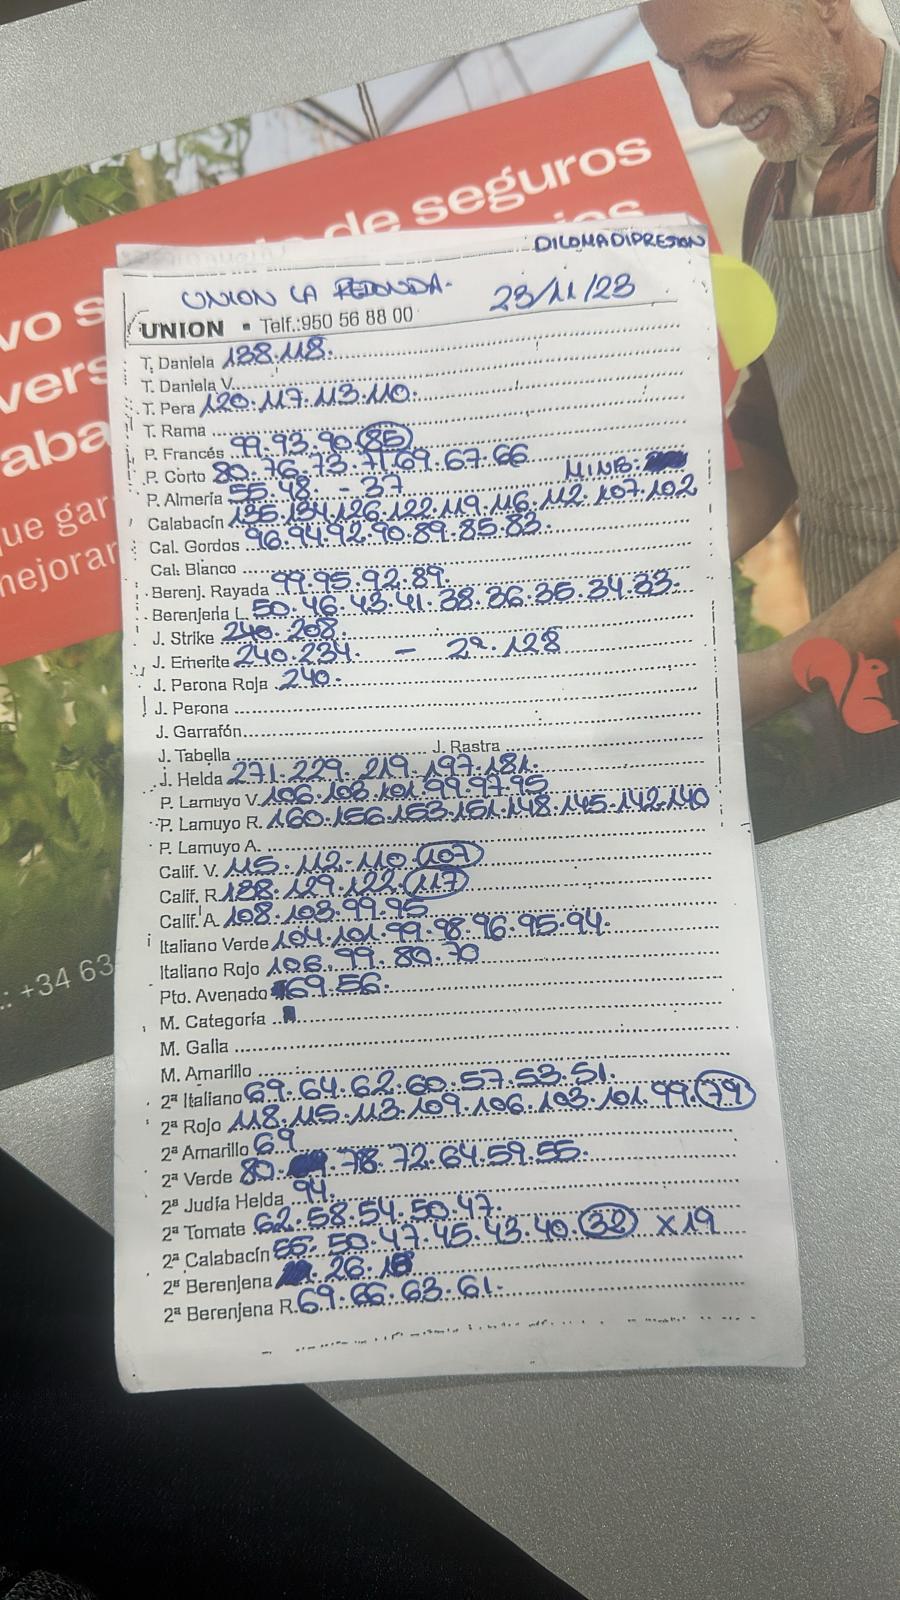 de seguros
vo s
vers
aba
ue gar
mejorar
.: +34 63
DILOMADIPRESION
UNION LA REDONDA. 23/11/23
UNION ▪ Telf.:950 56 88 00
T. Daniela 138.118.
T. Daniela V.
T. Pera 120.117.113.110.
T. Rama
P. Francés 99.93.90.85
P. Corto 80.76.73.71.69.67.66
P. Almería 55.48. - 37 MINB:
Calabacín 135.134.126.122.119.116.112.107.102
Cal. Gordos 96.94.92.90.89.85.83.
Cal. Blanco
Berenj. Rayada 99.95.92.89.
Berenjena L 50.46.43.41.38.36.35.34.33.
J. Strike 240.208.
J. Emerite 240.234. - 2ª.128
J. Perona Roja 240.
J. Perona
J. Garrafón
J. Tabella J. Rastra
J. Helda 271.229.219.197.181.
P. Lamuyo V. 106.103.101.99.97.95
P. Lamuyo R. 160.156.153.151.148.145.142.140
P. Lamuyo A.
Calif. V. 115.112.110.107
Calif. R. 138.129.122.117
Calif. A. 108.103.99.95
Italiano Verde 104.101.99.98.96.95.94.
Italiano Rojo 106.99.80.70
Pto. Avenado 69.56.
M. Categoría
M. Galia
M. Amarillo
2ª Italiano 69.64.62.60.57.53.51.
2ª Rojo 118.115.113.109.106.103.101.99.79
2ª Amarillo 69
2ª Verde 80. .78.72.64.59.55.
2ª Judía Helda 94.
2ª Tomate 62.58.54.50.47.
2ª Calabacín 55.50.47.45.43.40.32 x19
2ª Berenjena .26.
2ª Berenjena R. 69.66.63.61.